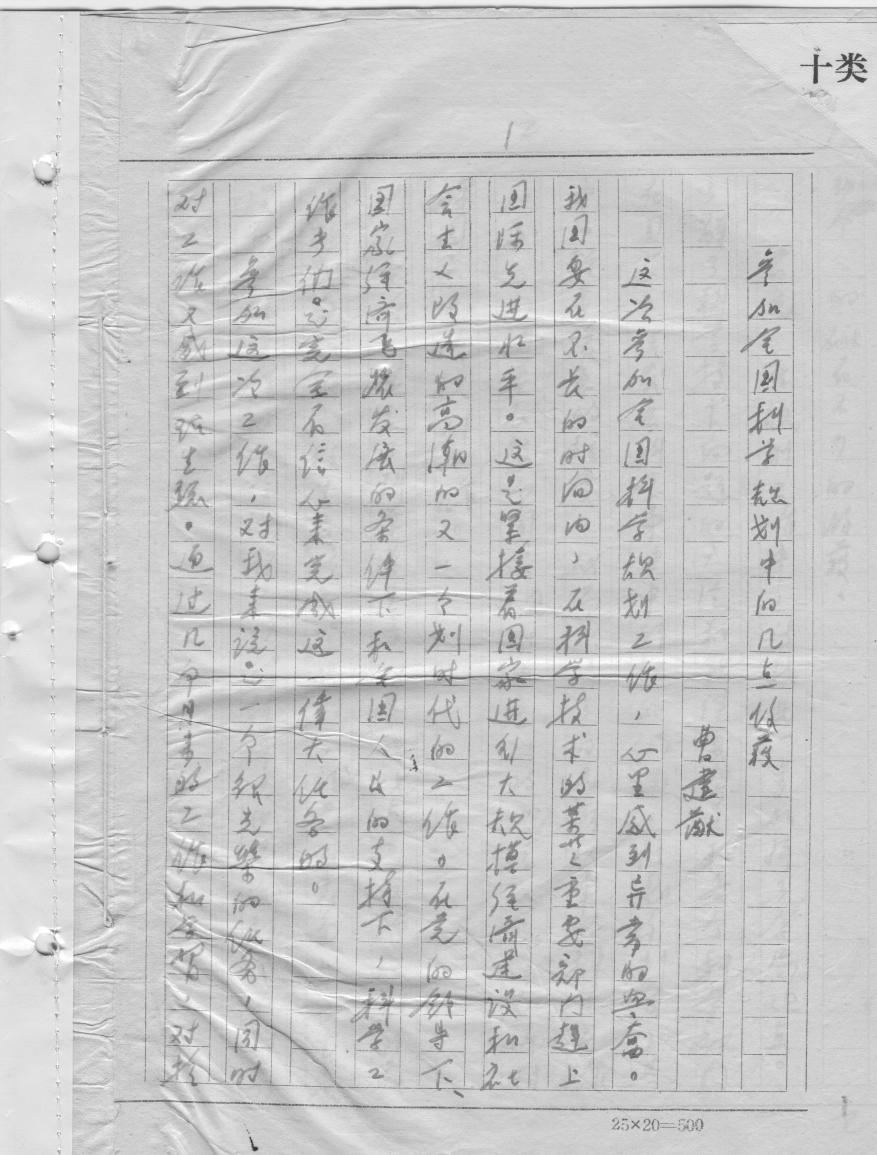 十类
1
参加全国科学规划中的几点收获
曹建猷
这次参加全国科学规划工作，心里感到异常的兴奋。
我国要在不长的时间内，在科学技术的某些重要部门赶上
国际先进水平。这是紧接着国家进行大规模经济建设和社
会主义改造的高潮的又一个划时代的工作。在党的领导下、
国家经济飞旋发展的条件下和全国人民的支持下，科学工
作者们是完全有信心来完成这一伟大任务的。
参加这次工作，对我来说是一个很光荣的任务，同时
对工作又感到很生疏。通过几个月来的工作和学习，对于
25×20=500